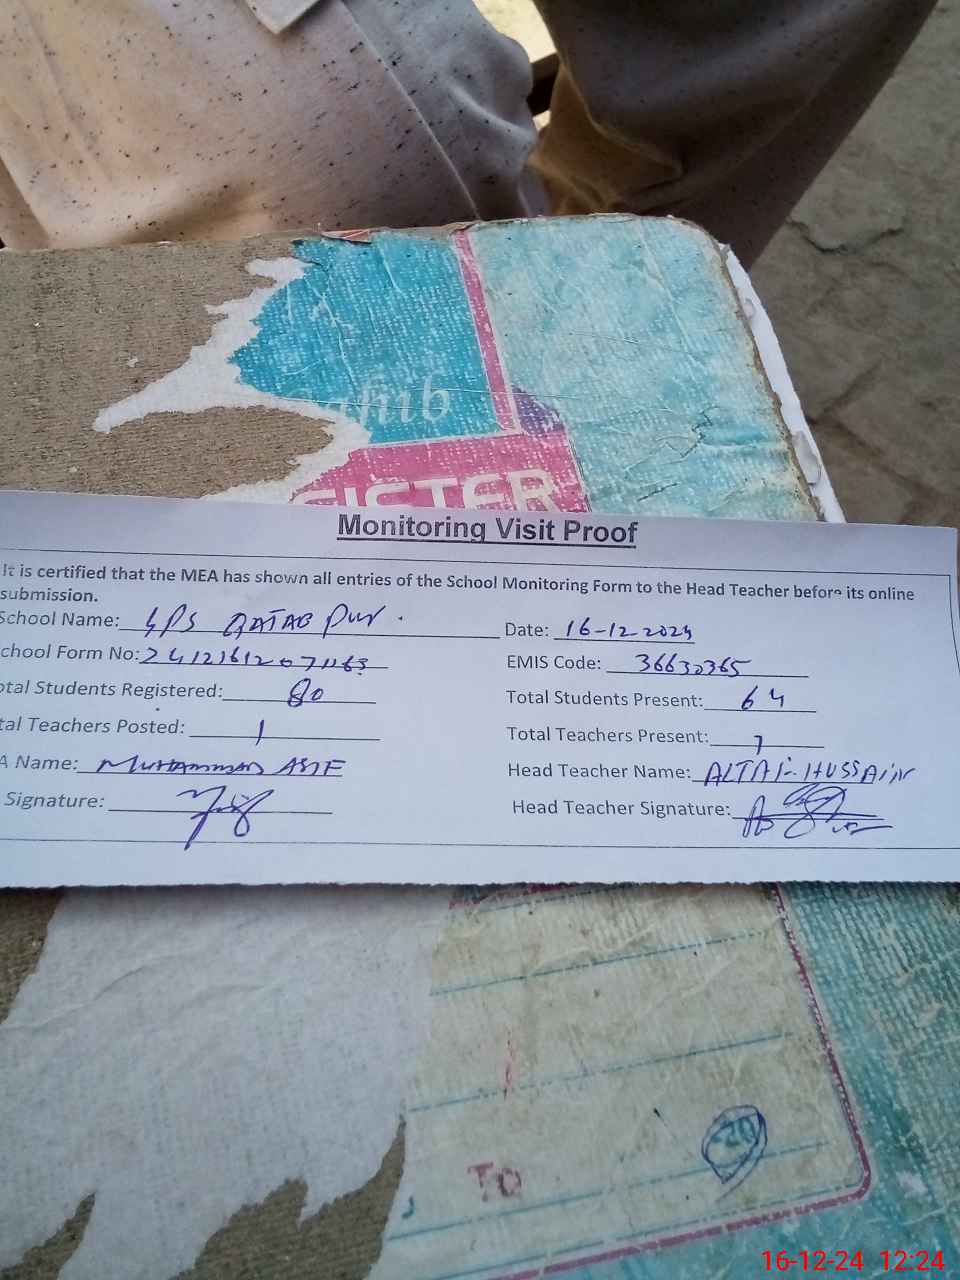 ahib
SISTER
Monitoring Visit Proof
It is certified that the MEA has shown all entries of the School Monitoring Form to the Head Teacher before its online
submission.
School Name: GPS QATAB PUR. Date: 16-12-2024
chool Form No: EMIS Code: 36630365
otal Students Registered: 80 Total Students Present: 64
tal Teachers Posted: 1 Total Teachers Present: 1
A Name: MUHAMMAD ASIF Head Teacher Name: ALTAF HUSSAIN
Signature: Head Teacher Signature:
20
To
16-12-24 12:24